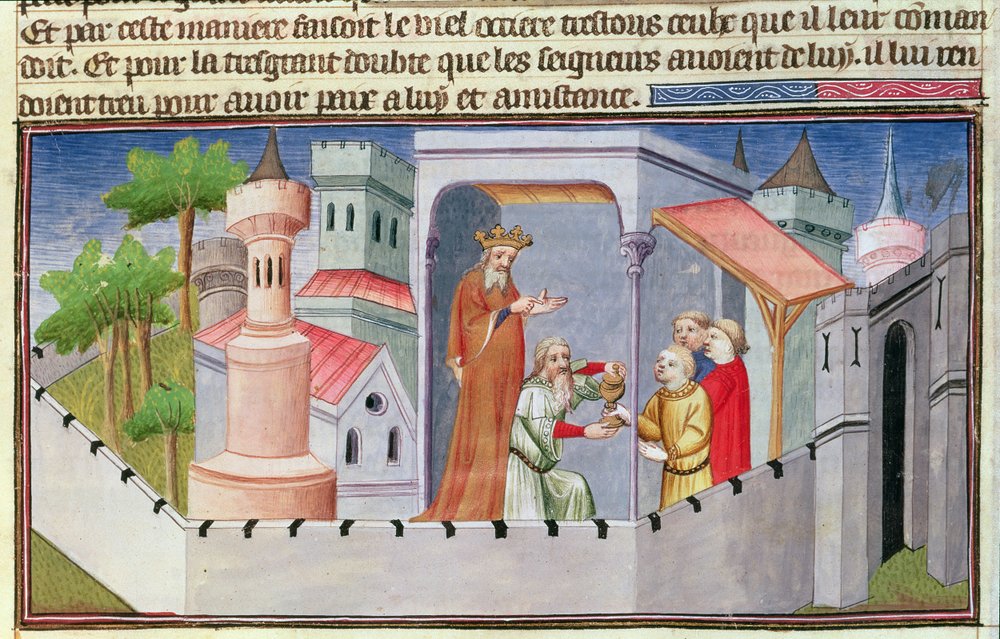 Et par ceste maniere faisoit le viel occiere trestous ceulx que il leur cōman
doit. Et pour la tresgrant doubte que les seigneurs auoient de luy. il lui ren
doient treu pour auoir paix a luy et amistance.